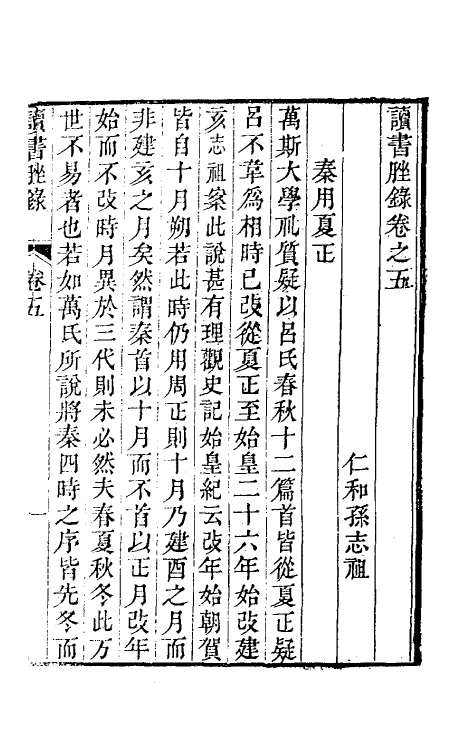 讀書脞錄卷之五
仁和孫志祖
秦用夏正
萬斯大學禮質疑以呂氏春秋十二篇首皆從夏正疑
呂不韋為相時已改從夏正至始皇二十六年始改建
亥志祖案此說甚有理觀史記始皇紀云改年始朝賀
皆自十月朔若此時仍用周正則十月乃建酉之月而
非建亥之月矣然謂秦首以十月而不首以正月改年
始而不改時月異於三代則未必然夫春夏秋冬此万
世不易者也若如萬氏所說將秦四時之序皆先冬而
讀書脞錄
卷五
一